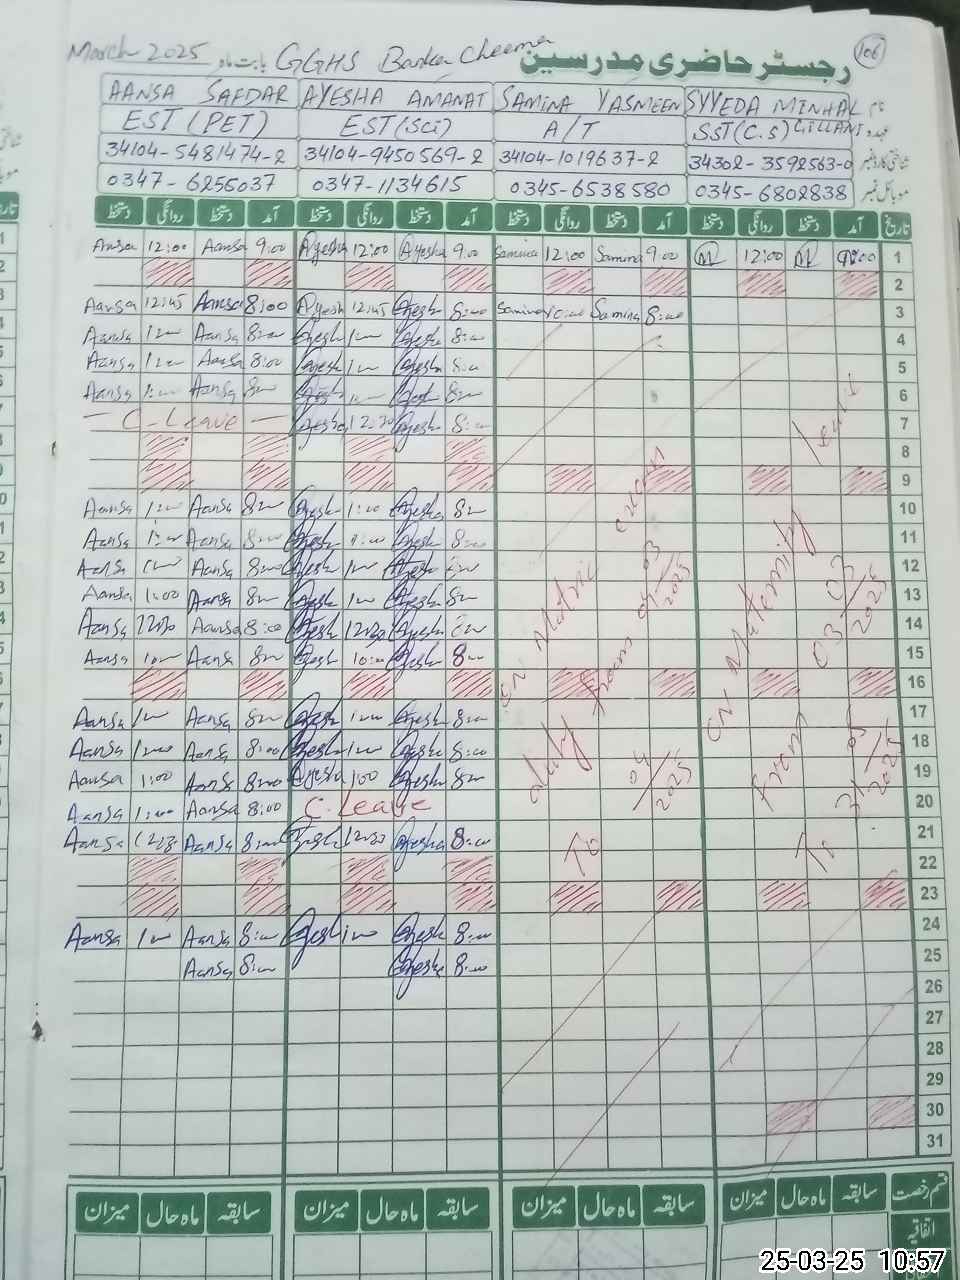 March 2025 بابت ماہ GGHS Barka Cheema رجسٹر حاضری مدرسین 106
AANSA SAFDAR AYESHA AMANAT SAMINA YASMEEN SYYEDA MINHAL GILLANI نام
EST (PET) EST (Sci) A/T SST (C.S) عہدہ
34104-5481474-2 34104-9450569-2 34104-1019637-2 34302-3592563-0 شناختی کارڈ نمبر
0347-6256037 0347-1134615 0345-6538580 0345-6802838 موبائل نمبر
دستخط روانگی دستخط آمد دستخط روانگی دستخط آمد دستخط روانگی دستخط آمد دستخط روانگی دستخط آمد تاریخ
Aansa 12:00 Aansa 9:00 Ayesha 12:00 Ayesha 9:00 Samina 12:00 Samina 9:00 12:00 9:00 1
2
Aansa 12:45 Aansa 8:00 Ayesh 12:45 Ayesh 8:00 Samina 10:00 Samina 8:00 3
Aansa 1:00 Aansa 8:00 Ayesh 1:00 Ayesh 8:00 4
Aansa 1:00 Aansa 8:00 Ayesh 1:00 Ayesh 8:00 5
Aansa 1:00 Aansa 8:00 Ayesh 8:00 6
C-Leave Ayesha 12:30 Ayesh 8:00 7
8
9
Aansa 1:00 Aansa 8:00 Ayesh 1:00 Ayesha 8:00 10
Aansa 1:00 Aansa 8:00 Ayesh 1:00 Ayesh 8:00 11
Aansa 1:00 Aansa 8:00 Ayesh 1:00 Ayesh 8:00 12
Aansa 1:00 Aansa 8:00 Ayesh 1:00 Ayesh 8:00 13
Aansa 12:30 Aansa 8:00 Ayesh 12:30 Ayesh 8:00 14
Aansa 10:00 Aansa 8:00 Ayesh 10:00 Ayesh 8:00 15
16
Aansa 1:00 Aansa 8:00 Ayesh 1:00 Ayesh 8:00 17
Aansa 1:00 Aansa 8:00 Ayesh 1:00 Ayesh 8:00 18
Aansa 1:00 Aansa 8:00 Ayesha 1:00 Ayesh 8:00 19
Aansa 1:00 Aansa 8:00 C.Leave 20
Aansa 12:30 Aansa 8:00 Ayesh 12:30 Ayesha 8:00 21
22
23
Aansa 1:00 Aansa 8:00 Ayesh 1:00 Ayesh 8:00 24
Aansa 8:00 Ayesh 8:00 25
26
27
28
29
30
31
ON Matric exam
duty from 04/03/2025
To 04/2025
ON Maternity leave
from 03/03/2025
To 31/05/2025
میزان ماہ حال سابقہ میزان ماہ حال سابقہ میزان ماہ حال سابقہ میزان ماہ حال سابقہ قسم رخصت
اتفاقیہ
25-03-25 10:57